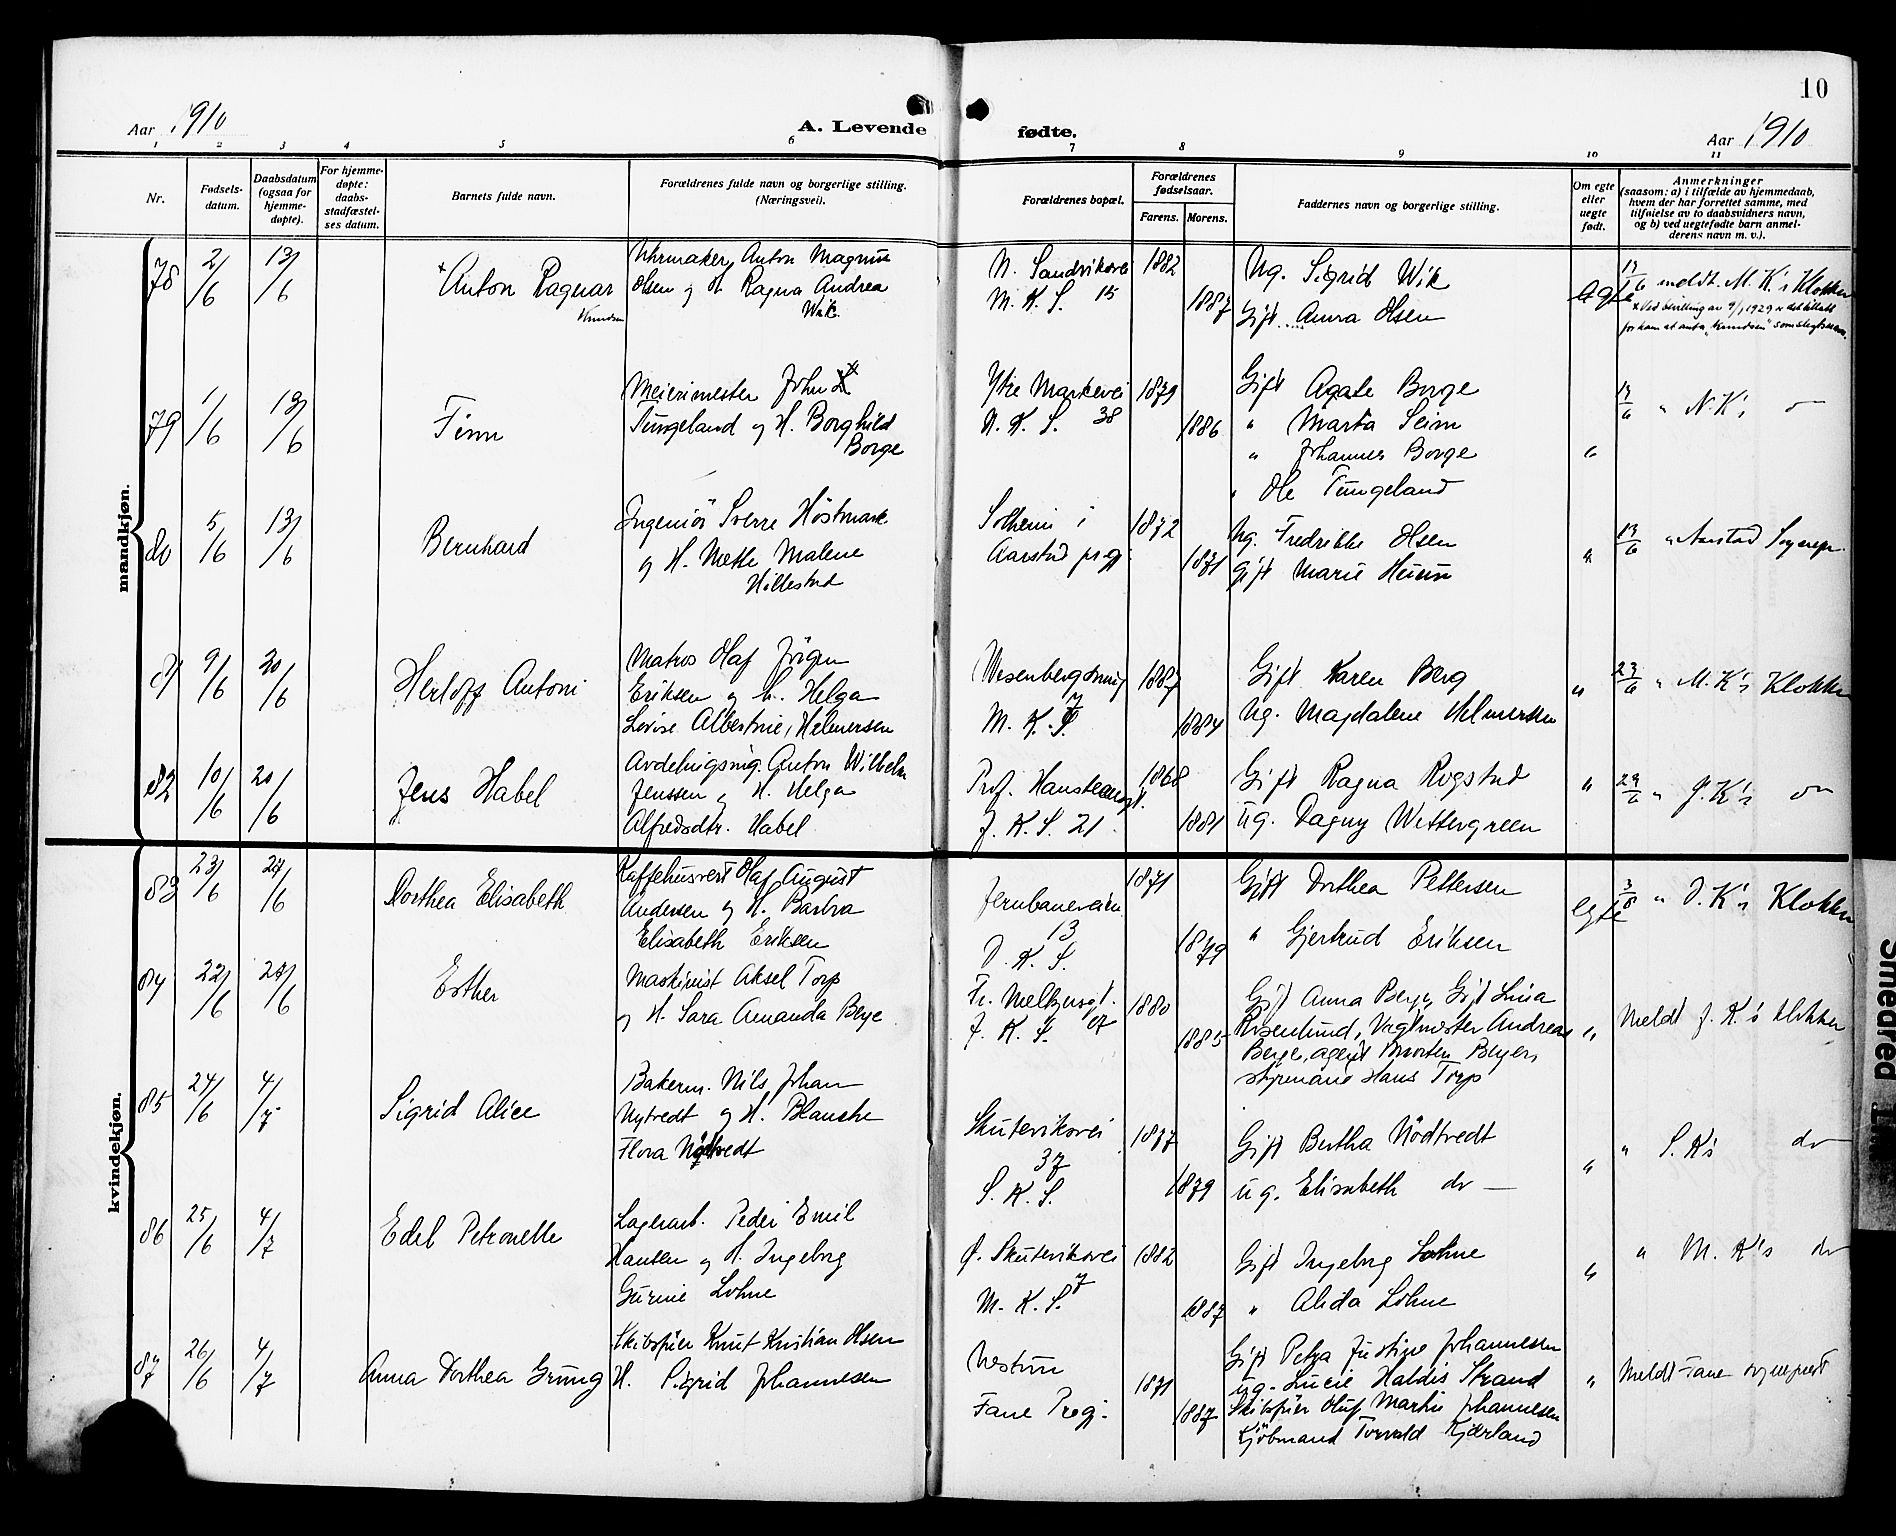 10
Aar 1910
A. Levende
fødte.
Aar 1910
1 2 3 4 5 6 7 8 9 10 11
Nr.
Fødsels-
datum.
Daabsdatum
(ogsaa for
hjemme-
døpte).
For hjemme-
døpte:
daabs-
stadfæstel-
ses datum.
Barnets fulde navn.
Forældrenes fulde navn og borgerlige stilling.
(Næringsvei).
Forældrenes bopæl.
Forældrenes
fødselsaar.
Farens. Morens.
Faddernes navn og borgerlige stilling.
Om egte
eller
uegte
født.
Anmerkninger
(saasom: a) i tilfælde av hjemmedaab,
hvem der har forrettet samme, med
tilføielse av to daabsvidners navn,
og b) ved uegtefødte barn anmel-
derens navn m. v.).
mandkjøn.
78 2/6 13/6 Anton Ragnar
Knudsen
Uhrmaker Anton Magnus
Olsen og H. Ragna Andrea
Wik.
N. Sandviksvei
M. K. S. 15
1882
1887
Ug. Sigrid Wik
Gift Anna Olsen
egte
13/6 meldt. M. K's Klokker
x Ved bevilling av 9/1 1929 er det tillatt
for ham at anta "Knudsen" som slegtsnavn.
79 1/6 13/6 Finn
Meierimester John
Tungeland og H. Borghild
Borge
Ytre Markevei
N. K. S. 38
1879
1886
Gift Agate Borge
" Marta Seim
" Johannes Borge
" Ole Tungeland
"
13/6 " N. K's do
80 5/6 13/6 Bernhard
Ingeniör Sverre Höstmark
og H. Mette Malene
Hillestad
Solheim i
Aarstad prgj.
1872
1871
Ug. Fredrikke Olsen
Gift Marie
"
13/6 " Aarstad Sognepr.
81 9/6 20/6 Herlof Antoni
Matros Olaf Jörgen
Eriksen og H. Helga
Lovise Albertine, Helmersen
Wesenbergsmug
7
M. K. S.
1887
1884
Gift Karen Berg
Ug. Magdalene Helmersen
"
23/6 " M. K's Klokker
82 10/6 20/6 Jens Habel
Avdelingsing. Anton Wilhelm
Jenssen og H. Helga
Alfredsdtr. Habel
Prof. Hansteensgt.
J. K. S. 21.
1868
1881
Gift Ragna Rogstad
ug. Dagny Wettergreen
"
29/6 " J. K's do
kvindekjøn.
83 23/6 27/6 Dorthea Elisabeth
Kaffehusvert Olaf August
Andersen og H. Barbra
Elisabeth Eriksen
Jernbaneveien
13
D. K. S.
1871
1879
Gift Dorthea Pettersen
" Gjertrud Eriksen
egte
3/8 " D. K's Klokker
84 22/6 28/6 Esther
Maskinist Aksel Torp
og H. Sara Amanda Berge
Fr. Meltzersgt.
J. K. S.
1880
1885
Gift Anna Berge, Gift Lina
Rosenlund, Vagtmester Andreas
Berge, agent Morten Beyer,
styrmand Hans Torp
"
Meldt J. K's klokker
85 24/6 4/7 Sigrid Alice
Bakerm. Nils Johan
Nytvedt og H. Blanche
Flora
Skuteviksvei
37
S. K. S.
1877
1879
Gift Bertha Nödtvedt
ug. Elisabeth do —
"
" S. K's do
86 25/6 4/7 Edel Petronelle
Lagerarb. Peder Emil
Hansen og H. Ingeborg
Gurine Lohne
Ø. Skuteviksvei
7
M. K. S.
1882
1887
Gift Ingeborg Lohne
" Alida Lohne
"
" M. K's do
87 26/6 4/7 Anna Dorthea Grung
Skibsfører Knut Kristian Olsen
H. Sigrid Johannesen
Nestun
Fane Pregj.
1871
1887
Gift Petra Justine Johannesen
ug. Lucie Haldis Strand
Skibsfører Oluf Martin Johannesen
Kjöbmand Torvald Kjærland
"
Meldt Fane sogneprest
Smedred